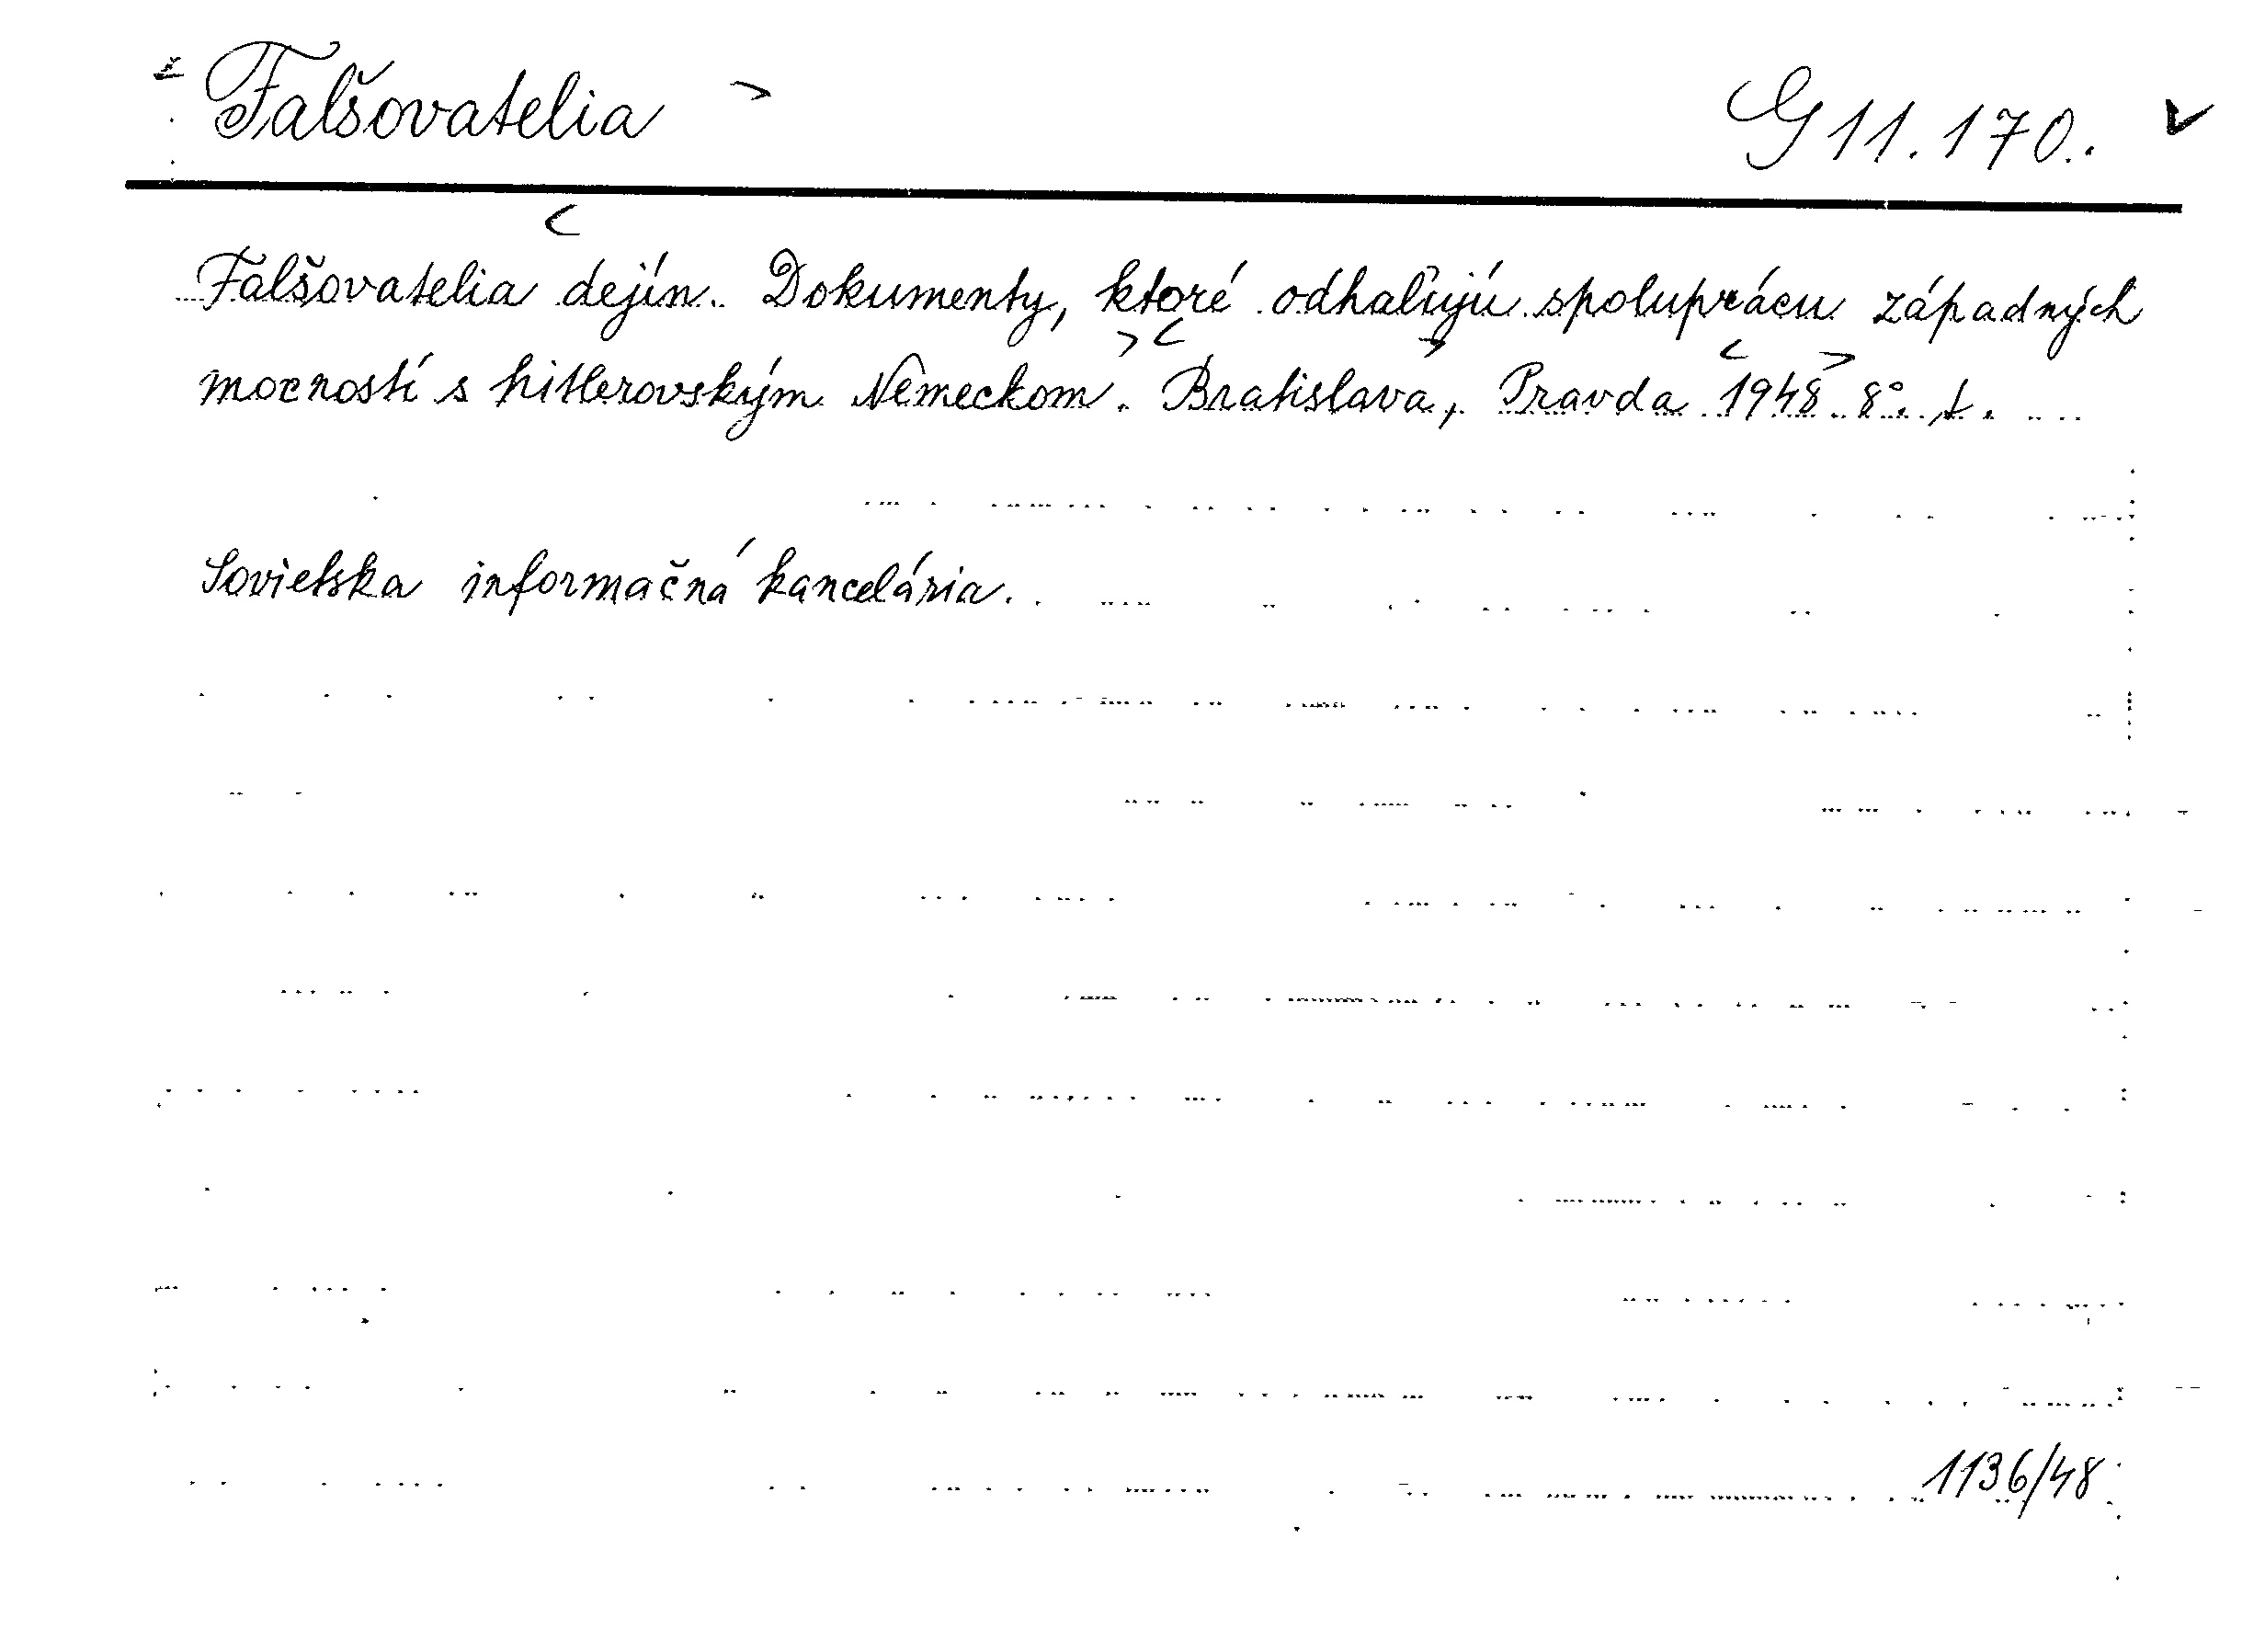 Falšovatelia
G 11.170.
Falšovatelia dejín. Dokumenty, ktoré odhaľujú spoluprácu západných
mocností s hitlerovským Nemeckom. Bratislava, Pravda 1948 8°. t.
Sovietska informačná kancelária.
1136/48